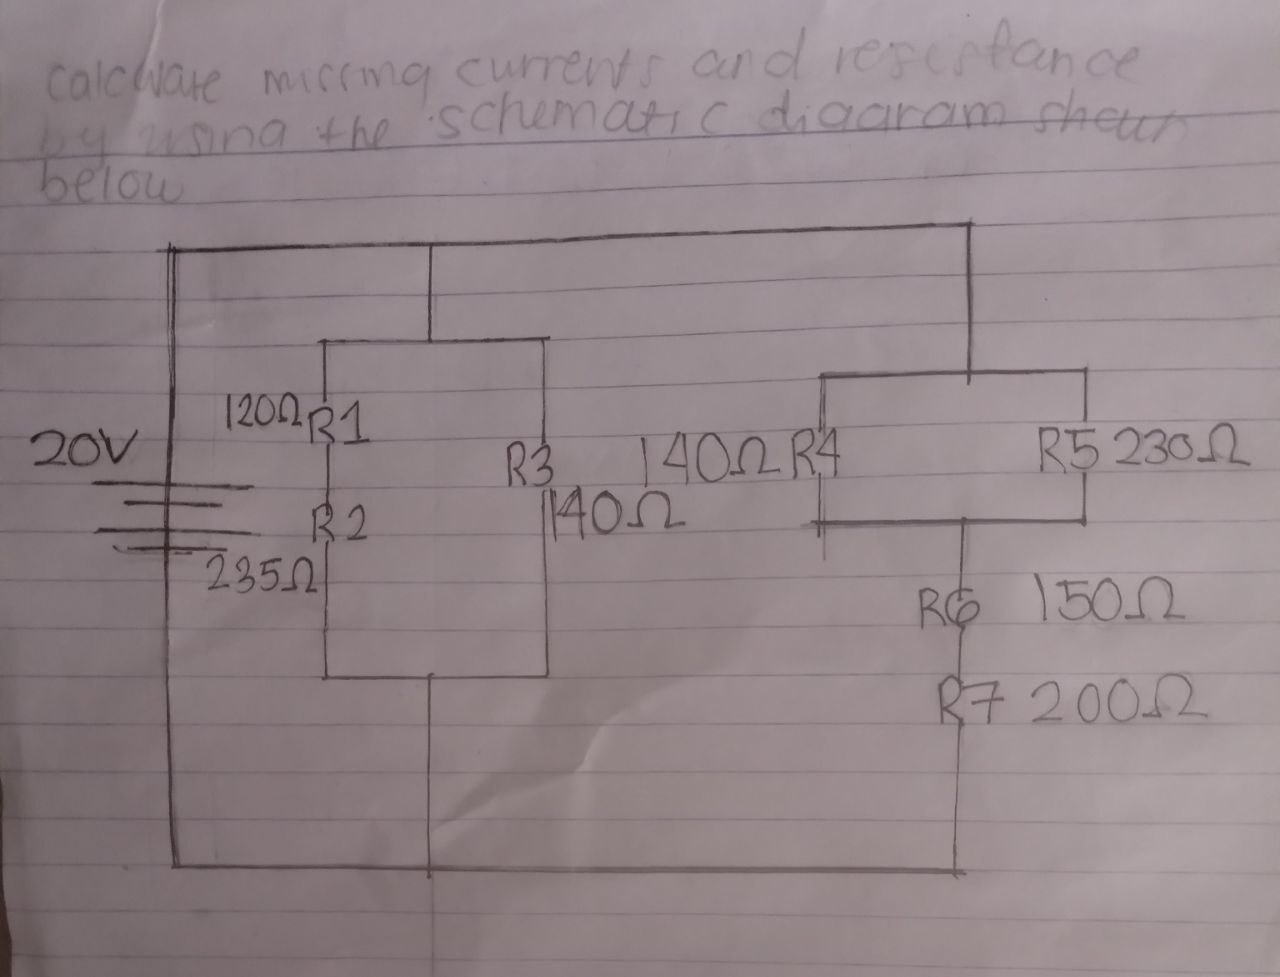 calculate missing currents and resistance
by using the schematic diagram shown
below
120Ω R1
20V
R3
140Ω R4
R5 230Ω
R2
140Ω
235Ω
R6 150Ω
R7 200Ω